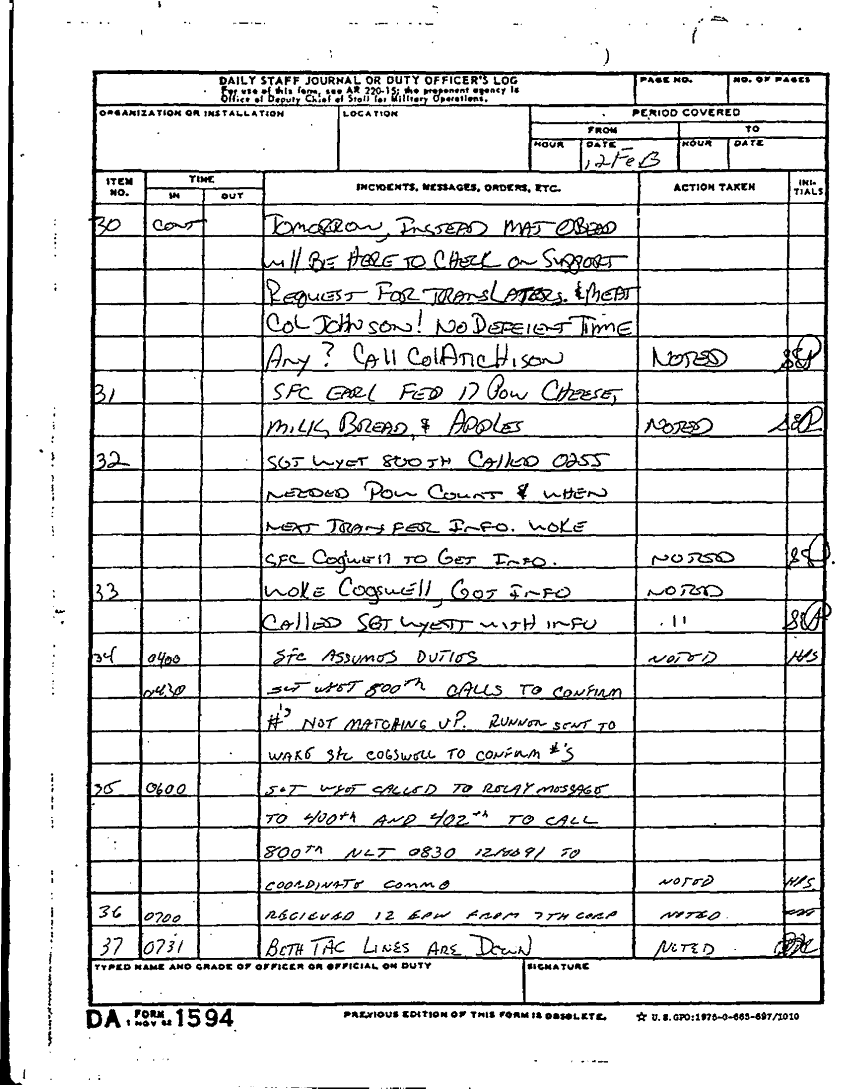 DAILY STAFF JOURNAL OR DUTY OFFICER'S LOG
For use of this form, see AR 220-15; the proponent agency is
Office of Deputy Chief of Staff for Military Operations.
PAGE NO. NO. OF PAGES
ORGANIZATION OR INSTALLATION LOCATION PERIOD COVERED
FROM TO
HOUR DATE HOUR DATE
12 FEB
ITEM NO. TIME IN OUT INCIDENTS, MESSAGES, ORDERS, ETC. ACTION TAKEN INITIALS
30 CONT TOMORROW, INSTEAD MAJ OBEAD
will BE HERE TO CHECK ON SUPPORT
REQUEST FOR TRANSLATERS. & MEAT
COL JOHNSON! NO DEFEIENT TIME
ANY? CALL COL ATCHISON NOTED
31 SFC EARL FED 17 POW CHEESE,
MILK, BREAD, & APPLES NOTED
32 SGT WYET 800TH CALLED 0255
NEEDED POW COUNT & WHEN
NEXT TRANSFER INFO. WOKE
SFC Cogwell TO GET INFO. NOTED
33 WOKE COGSWELL, GOT INFO NOTED
CALLED SGT WYETT WITH INFO "
34 0400 SFC ASSUMES DUTIES NOTED HPS
0430 SGT WYET 800th CALLS TO CONFIRM
#'s NOT MATCHING UP. RUNNER SENT TO
WAKE SFC COGSWELL TO CONFIRM #'S
35 0600 SGT WYET CALLED TO RELAY MESSAGE
TO 400th AND 402th TO CALL
800TH NLT 0830 12 FEB 91 TO
COORDINATE COMMO NOTED HPS
36 0700 RECIEVED 12 EPW FROM 7TH CORP NOTED
37 0731 BOTH TAC LINES ARE DOWN NOTED
TYPED NAME AND GRADE OF OFFICER OR OFFICIAL ON DUTY SIGNATURE
DA FORM 1 NOV 62 1594 PREVIOUS EDITION OF THIS FORM IS OBSOLETE. ☆ U.S. GPO:1978-0-665-697/1010